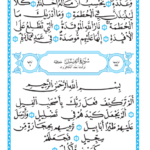 لَيُنۢبَذَنَّ فِي الْحُطَمَةِ وَمَا أَدْرَىٰكَ مَا
الْحُطَمَةُ نَارُ اللَّهِ الْمُوقَدَةُ الَّتِي تَطَّلِعُ عَلَى
الْأَفْـِٔدَةِ إِنَّهَا عَلَيْهِم مُّؤْصَدَةٌ فِي عَمَدٍ مُّمَدَّدَةٍ
سُورَةُ الْفِيلِ
بِسْمِ اللَّهِ الرَّحْمَٰنِ الرَّحِيمِ
أَلَمْ تَرَ كَيْفَ فَعَلَ رَبُّكَ بِأَصْحَٰبِ الْفِيلِ
أَلَمْ يَجْعَلْ كَيْدَهُمْ فِي تَضْلِيلٍ وَأَرْسَلَ
عَلَيْهِمْ طَيْرًا أَبَابِيلَ تَرْمِيهِم بِحِجَارَةٍ مِّن